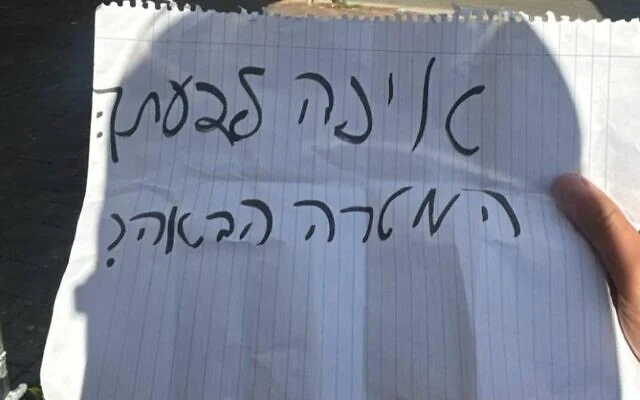 אינה לדעתך:
המטרה הבאה?